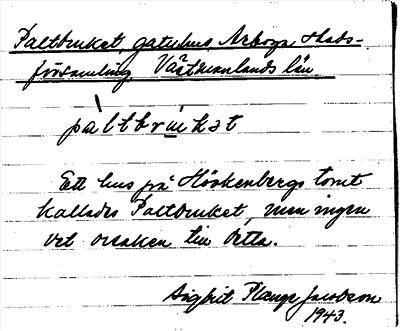 Paltbruket, gatuhus Arboga stads-
församling Västmanlands län
paltbrukat
Ett hus på Höökenbergs tomt
kallades Paltbruket, men ingen
vet orsaken till detta.
Sigbrit Plænge Jacobson
1943.